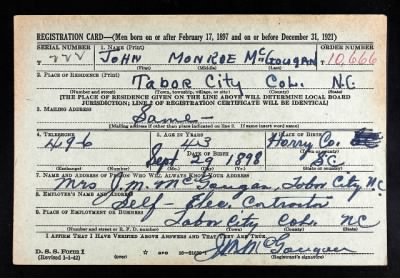 REGISTRATION CARD—(Men born on or after February 17, 1897 and on or before December 31, 1921)
SERIAL NUMBER 1. NAME (Print) ORDER NUMBER
JOHN MONROE McGougan 10,666
(First) (Middle) (Last)
2. PLACE OF RESIDENCE (Print)
Tabor City Col. N.C.
(Number and street) (Town, township, village, or city) (County) (State)
[THE PLACE OF RESIDENCE GIVEN ON THE LINE ABOVE WILL DETERMINE LOCAL BOARD
JURISDICTION; LINE 2 OF REGISTRATION CERTIFICATE WILL BE IDENTICAL]
3. MAILING ADDRESS
Same
[Mailing address if other than place indicated on line 2. If same insert word same]
4. TELEPHONE 5. AGE IN YEARS 6. PLACE OF BIRTH
496 43 Horry Co.
DATE OF BIRTH (Town or county)
Sept 29 1898 SC
(Exchange) (Number) (Mo.) (Day) (Yr.) (State or country)
7. NAME AND ADDRESS OF PERSON WHO WILL ALWAYS KNOW YOUR ADDRESS
Mrs J. M. McGougan, Tabor City NC
8. EMPLOYER'S NAME AND ADDRESS
Self - Elec. Contractor
9. PLACE OF EMPLOYMENT OR BUSINESS
Tabor City, Col. NC
(Number and street or R. F. D. number) (Town) (County) (State)
I AFFIRM THAT I HAVE VERIFIED ABOVE ANSWERS AND THAT THEY ARE TRUE.
D. S. S. Form 1 GPO
(Revised 1-1-42) (Registrant's signature)
J M McGougan